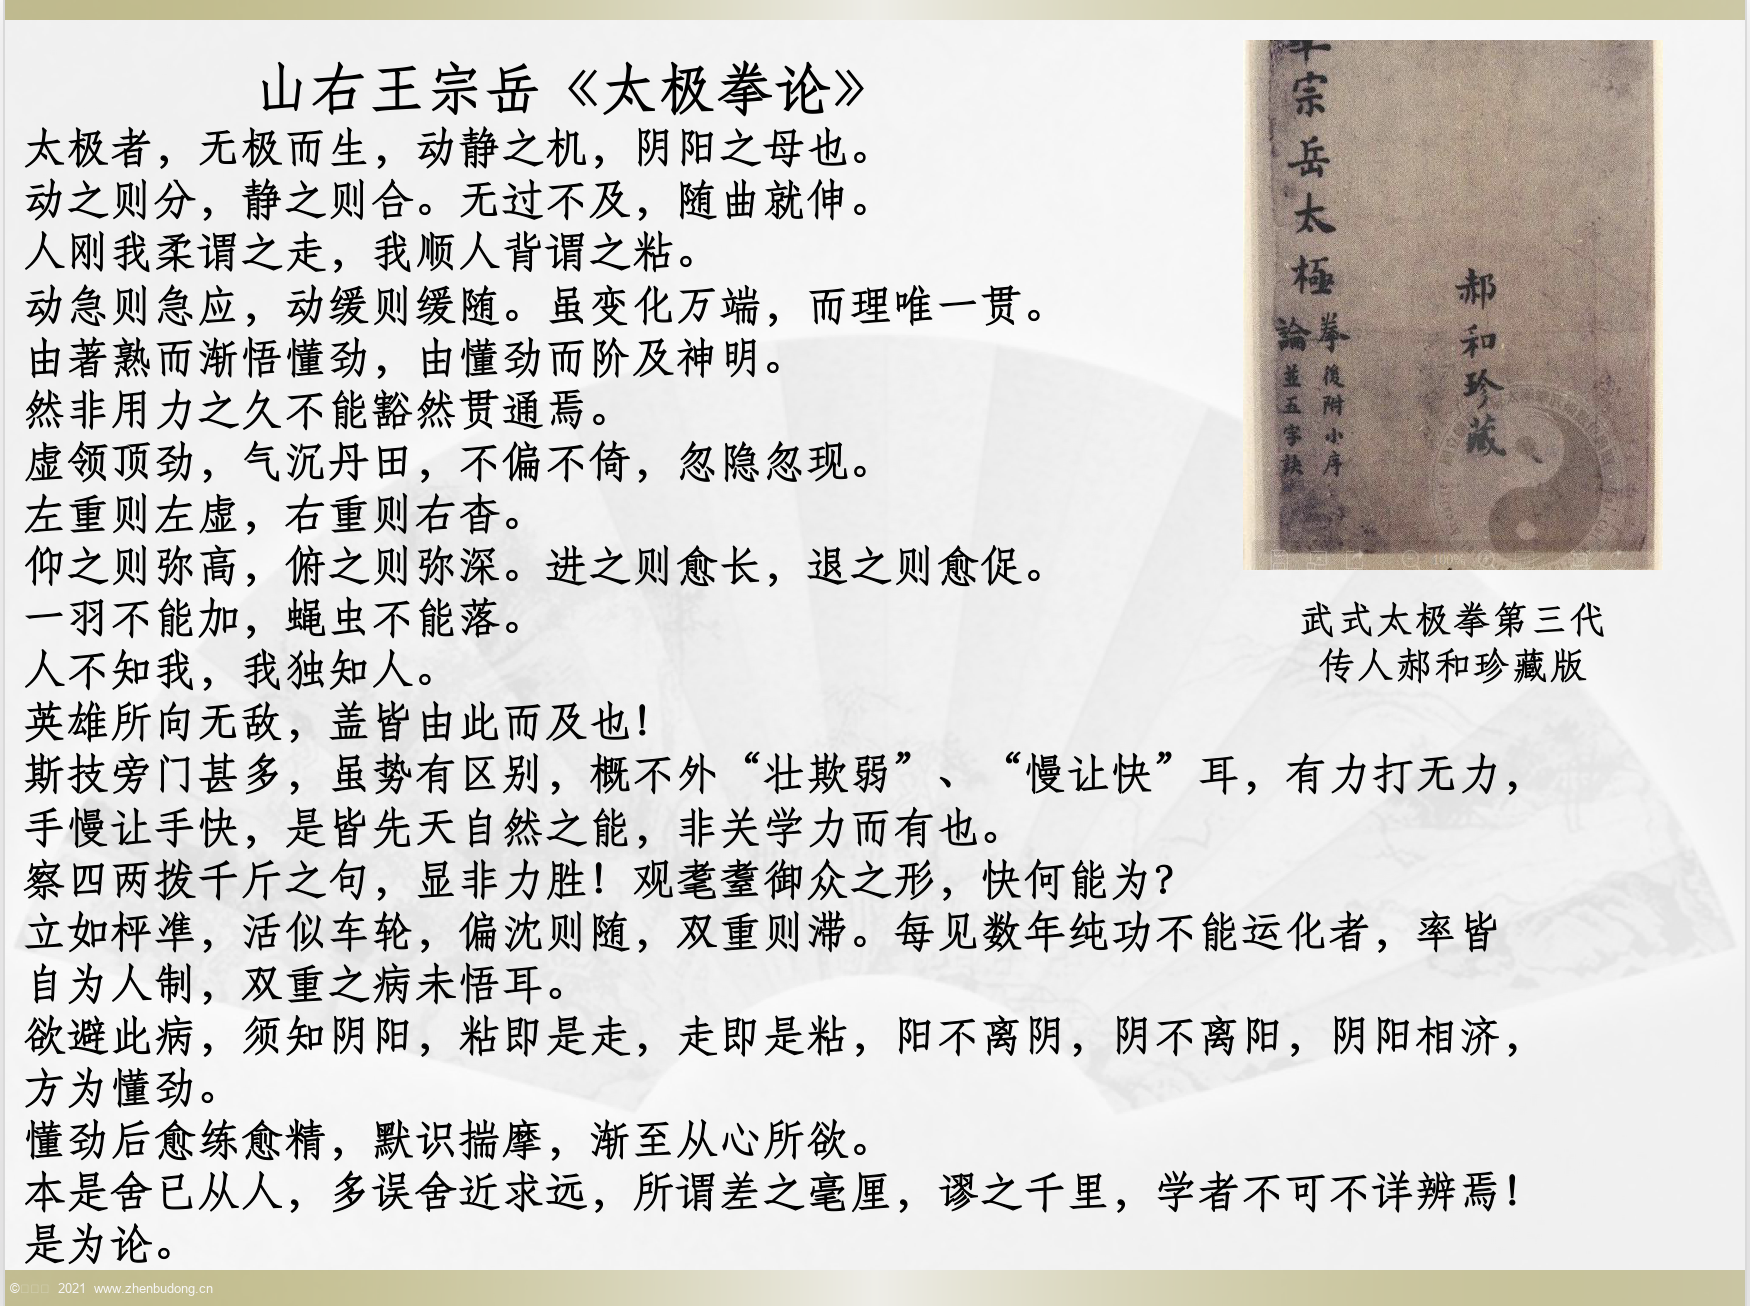 山右王宗岳《太极拳论》
太极者，无极而生，动静之机，阴阳之母也。
动之则分，静之则合。无过不及，随曲就伸。
人刚我柔谓之走，我顺人背谓之粘。
动急则急应，动缓则缓随。虽变化万端，而理唯一贯。
由著熟而渐悟懂劲，由懂劲而阶及神明。
然非用力之久不能豁然贯通焉。
虚领顶劲，气沉丹田，不偏不倚，忽隐忽现。
左重则左虚，右重则右杳。
仰之则弥高，俯之则弥深。进之则愈长，退之则愈促。
一羽不能加，蝇虫不能落。
人不知我，我独知人。
英雄所向无敌，盖皆由此而及也！
斯技旁门甚多，虽势有区别，概不外“壮欺弱”、“慢让快”耳，有力打无力，
手慢让手快，是皆先天自然之能，非关学力而有也。
察四两拨千斤之句，显非力胜！观耄耋御众之形，快何能为？
立如枰準，活似车轮，偏沈则随，双重则滞。每见数年纯功不能运化者，率皆
自为人制，双重之病未悟耳。
欲避此病，须知阴阳，粘即是走，走即是粘，阳不离阴，阴不离阳，阴阳相济，
方为懂劲。
懂劲后愈练愈精，默识揣摩，渐至从心所欲。
本是舍已从人，多误舍近求远，所谓差之毫厘，谬之千里，学者不可不详辨焉！
是为论。
宗岳太極拳論
後附小序
並五字訣
郝和珍藏
100%
武式太极拳第三代
传人郝和珍藏版
© 2021 www.zhenbudong.cn